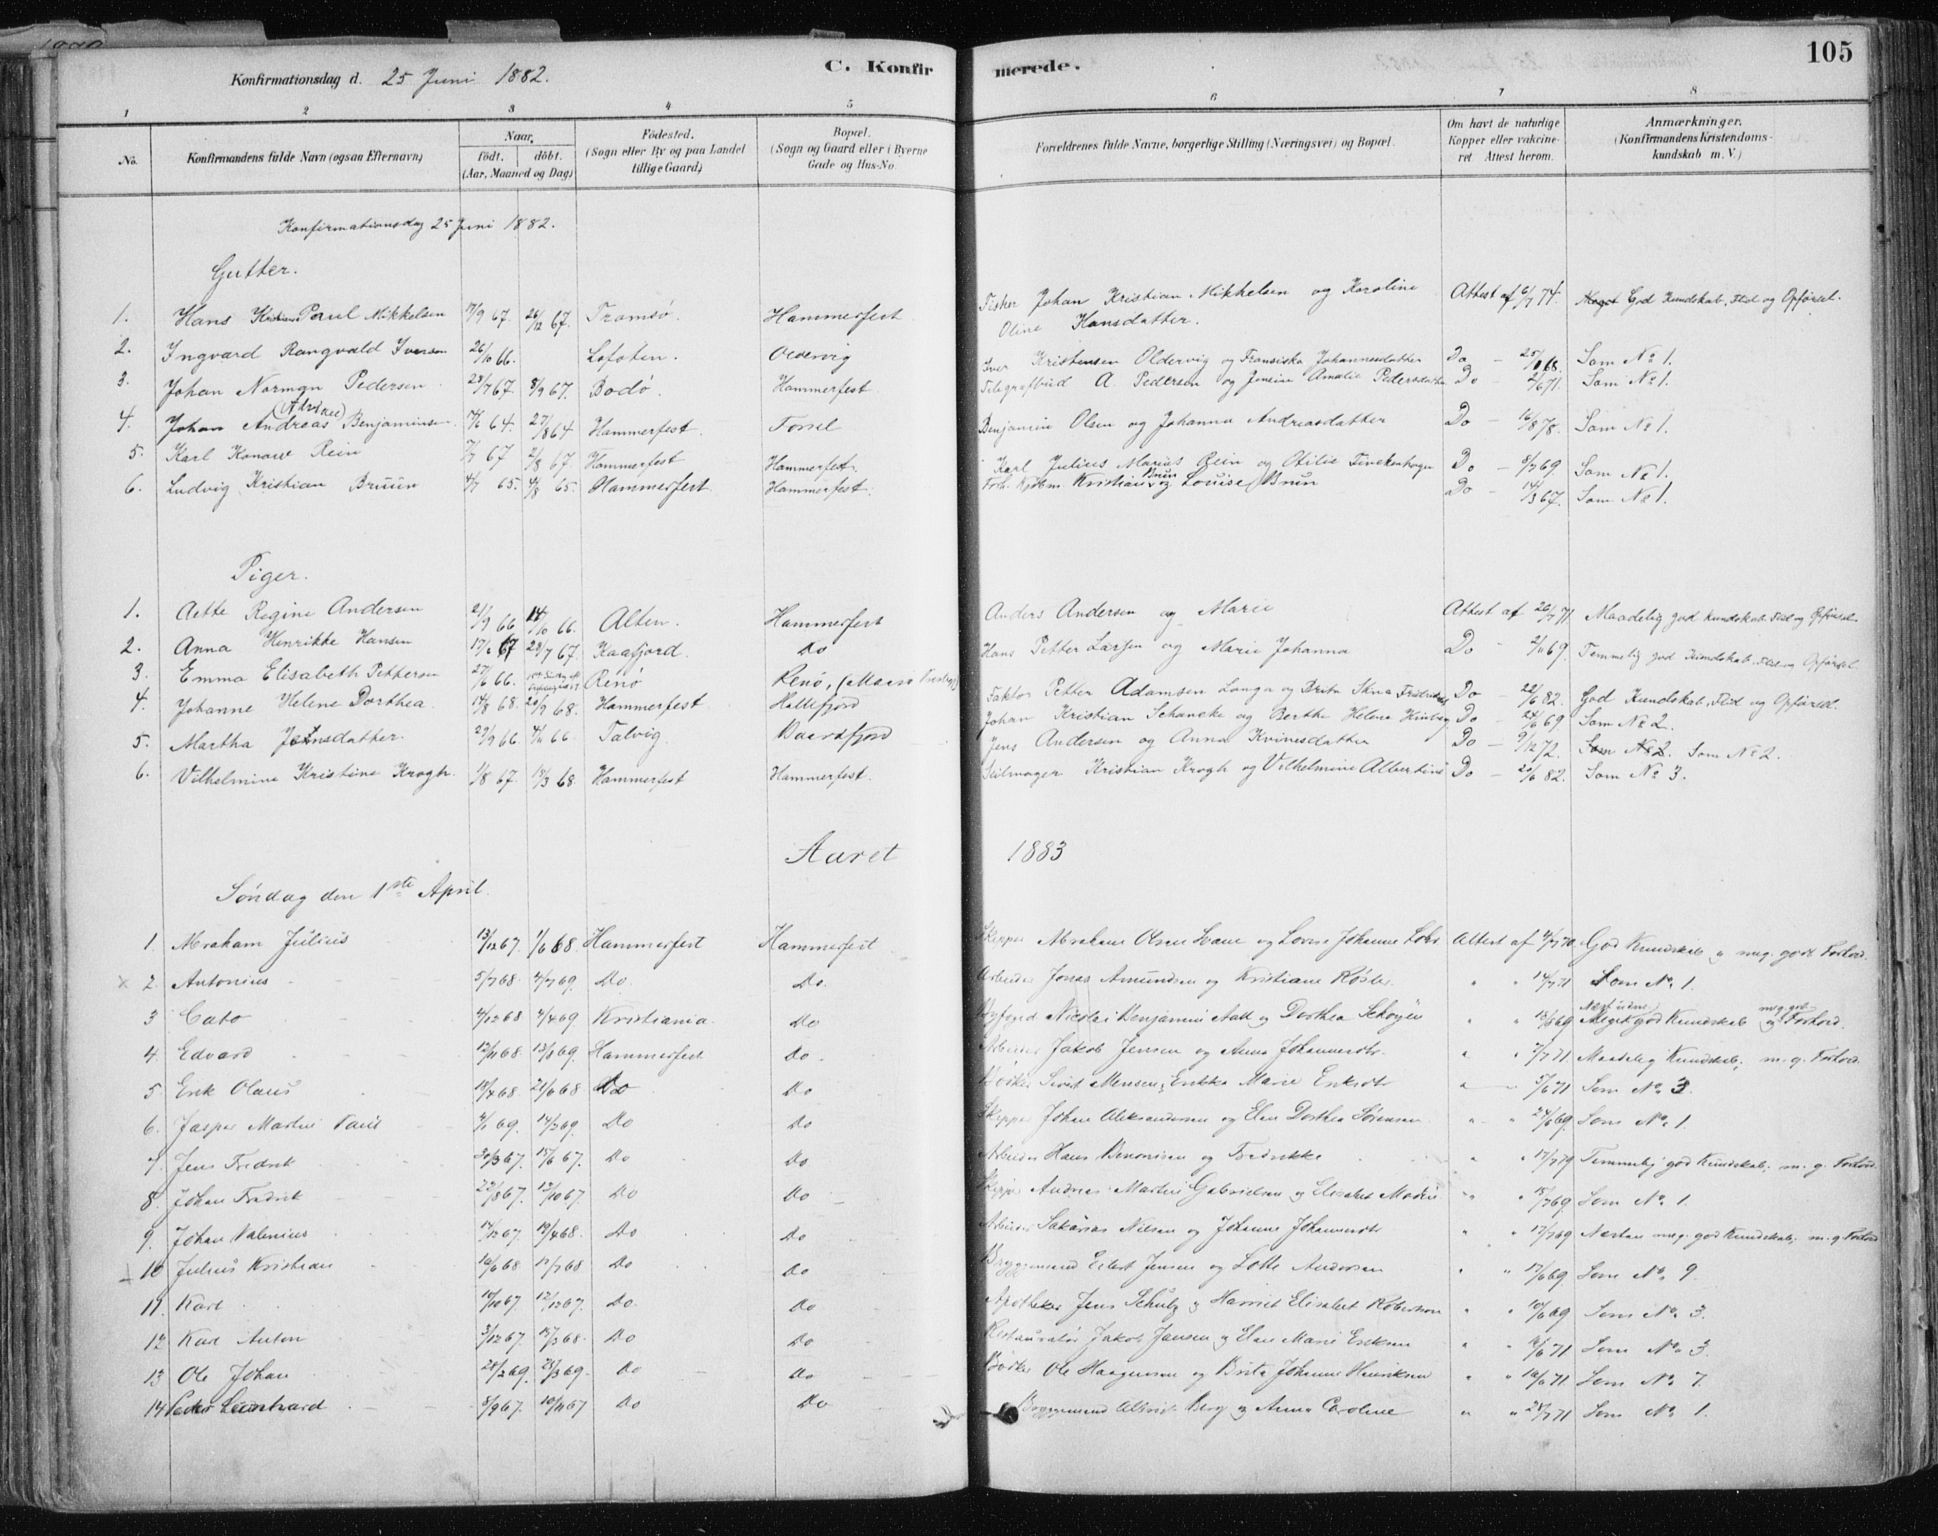 105
Konfirmationsdag d. 25 Juni 1882. C. Konfirmerede.
1 2 3 4 5 6 7 8
No. Konfirmandens fulde Navn (ogsaa Efternavn) Naar født. døbt. (Aar, Maaned og Dag) Fødested. (Sogn eller By og paa Landet tillige Gaard) Bopæl. (Sogn og Gaard eller i Byerne Gade og Hus-No. Forældrenes fulde Navne, borgerlige Stilling (Næringsvei) og Bopæl. Om havt de naturlige Kopper eller vakcineret Attest herom. Anmærkninger. (Konfirmandens Kristendomskundskab m. V.)
Konfirmationsdag 25 Juni 1882.
Gutter.
1. Hans Paul Mikkelsen 17/9 67. 26/12 67. Tromsø. Hammerfest Fisker Johan Kristian Mikkelsen og Karoline Oline Hansdatter. Attest af 6/7 74. God Kundskab, Flid og Opførsel.
2. Ingvard Rangvald Iversen 26/10 66. Lofoten. Oldervig Iver Kristensen Oldervig og Fransiska Johannesdatter Do Som No 1.
3. Johan Norman Pedersen 28/7 67. 8/9 67. Bodø. Hammerfest Telegrafbud A. Pedersen og Jensine Amalie Pedersdatter Do 2/6 71. Som No 1.
4. Johan Andreas (Adrian) Benjaminsen 64. 27/8 64 Hammerfest. Forsøl Benjamin Olsen og Johanna Andreasdatter Do 16/8 78. Som No 1.
5. Karl Konow Rein 7/7 67 2/8 67. Hammerfest Hammerfest. Karl Julius Marius Rein og Otilie Finckenhagen Do 8/7 69 Som No 1.
6. Ludvig Kristian Bruun 4/7 65. 4/8 65. Hammerfest Hammerfest. Kristian Bruun og Louise Brun Do 14/3 67. Som No 1.
Piger.
1. Aette Regine Andersen 21/9 66 14/10 66. Alten. Hammerfest Anders Andersen og Marie Attest af 26/7 71. Maadelig god Kundskab, Flid og Opførsel.
2. Anna Henrikke Hansen 67 28/7 67. Kaafjord. Do Hans Petter Larsen og Marie Johanna Do 2/11 69. Temmelig god Kundskab, Flid og Opførsel.
3. Emma Elisabeth Pettersen 27/6 66. Renø Renø, Faktor Petter Adamsen Longa og Brita Stina Do 22/6 82. God Kundskab, Flid og Opførsel.
4. Johanne Helene Dorthea 14/8 68. 20/9 68. Hammerfest Hellefjord Johan Kristian Schancke og Berthe Helene Do 24/6 69. Som No 2.
5. Martha Jensdatter. 29/9 66 66. Talvig. Baardfjord Jens Andersen og Anna Kvinesdatter Do 9/12 72. Som No 2. Som No 2.
6. Vilhelmine Kristine Krogh. 1/8 67. 13/3 68. Hammerfest Hammerfest. Seilmager Kristian Krogh og Vilhelmine Albertine Do 20/6 82. Som No 3.
Aaret 1883
Søndag den 1ste April.
1. Abraham Julius 13/12 67. 1/6 68. Hammerfest Hammerfest Skipper Abraham Olsen Svane og Lovise Johanne Attest af 4/7 70. God Kundskab og meg. godt Forhold.
2. Antonius 5/7 68. 4/7 69. Do. Do. Arbeider Jonas Amundsen og Kristiane " " 14/7 71 Som No. 1.
3 Cato 4/12 68 4/4 69 Kristiania. Do Byfoged Nicolai Benjamin Aall og Dorthea Schøyen " " 13/8 69 god Kundskab og Forhold.
4. Edvard 12/11 68. 13/3 69. Hammerfest Do. Arbeider Jakob Jensen og Anna Johannesdtr. " " 7/7 71 Maadelig Kundskab; m. g. Forhold.
5 Erik Olaus 18/4 68. 21/6 68 Do Do Sivert Monsen, Erikka Marie Eriksdtr " 5/6 71 Som No. 3.
6. Jasper Martin Paul 4/1 69. 14/3 69. Do Do Skipper Johan Aleksandersen og Elen Dorthea Sørensen " " 24/6 69. Som No. 1.
7. Jens Fredrik 30/3 67. 15/6 67. Do Do Arbeider Hans Benonisen og Fredrikke " " 17/7 79 Temmelig god Kundskab; m. g. Forhold.
8. Johan Fredrik 22/8 67. 13/10 67. Do Do Skipper Andreas Martin Gabrielsen og Elisabet " " 15/7 69 Som No. 1.
9. Johan Valenius 17/12 67. 19/4 68. Do Do Arbeider Sakarias Nilsen og Johanne Johannesdtr " " 17/7 69 Næsten meg. god Kundskab; m. g. Forhold
10 Julius Kristian 10/6 68 12/7 68 Do Do Bryggemand Eilert Jensen og Lotte Andersen " " 17/6 69 Som No. 9.
11. Karl 14/10 67 12/12 67. Do. Do Apotheker Jens Schulz og Harriet Elisabet Robertson " " 10/6 69 Som No. 3.
12 Karl Anton 3/12 67. 15/3 68. Do Do Restauratør Jakob Jansen og Elen Marie Eriksen " " 16/6 71 Som No. 3.
13 Ole Johan 28/2 69. 28/3 69. Do Do Bødker Ole Haagensen og Brita Johanne Henriksen " " 10/6 71 Som No. 7.
14 Peder Leonhard 8/9 67. 10/11 67 Do Do Bryggemand Albrigt Berg og Anna Caroline " " 28/7 71 Som No. 1.